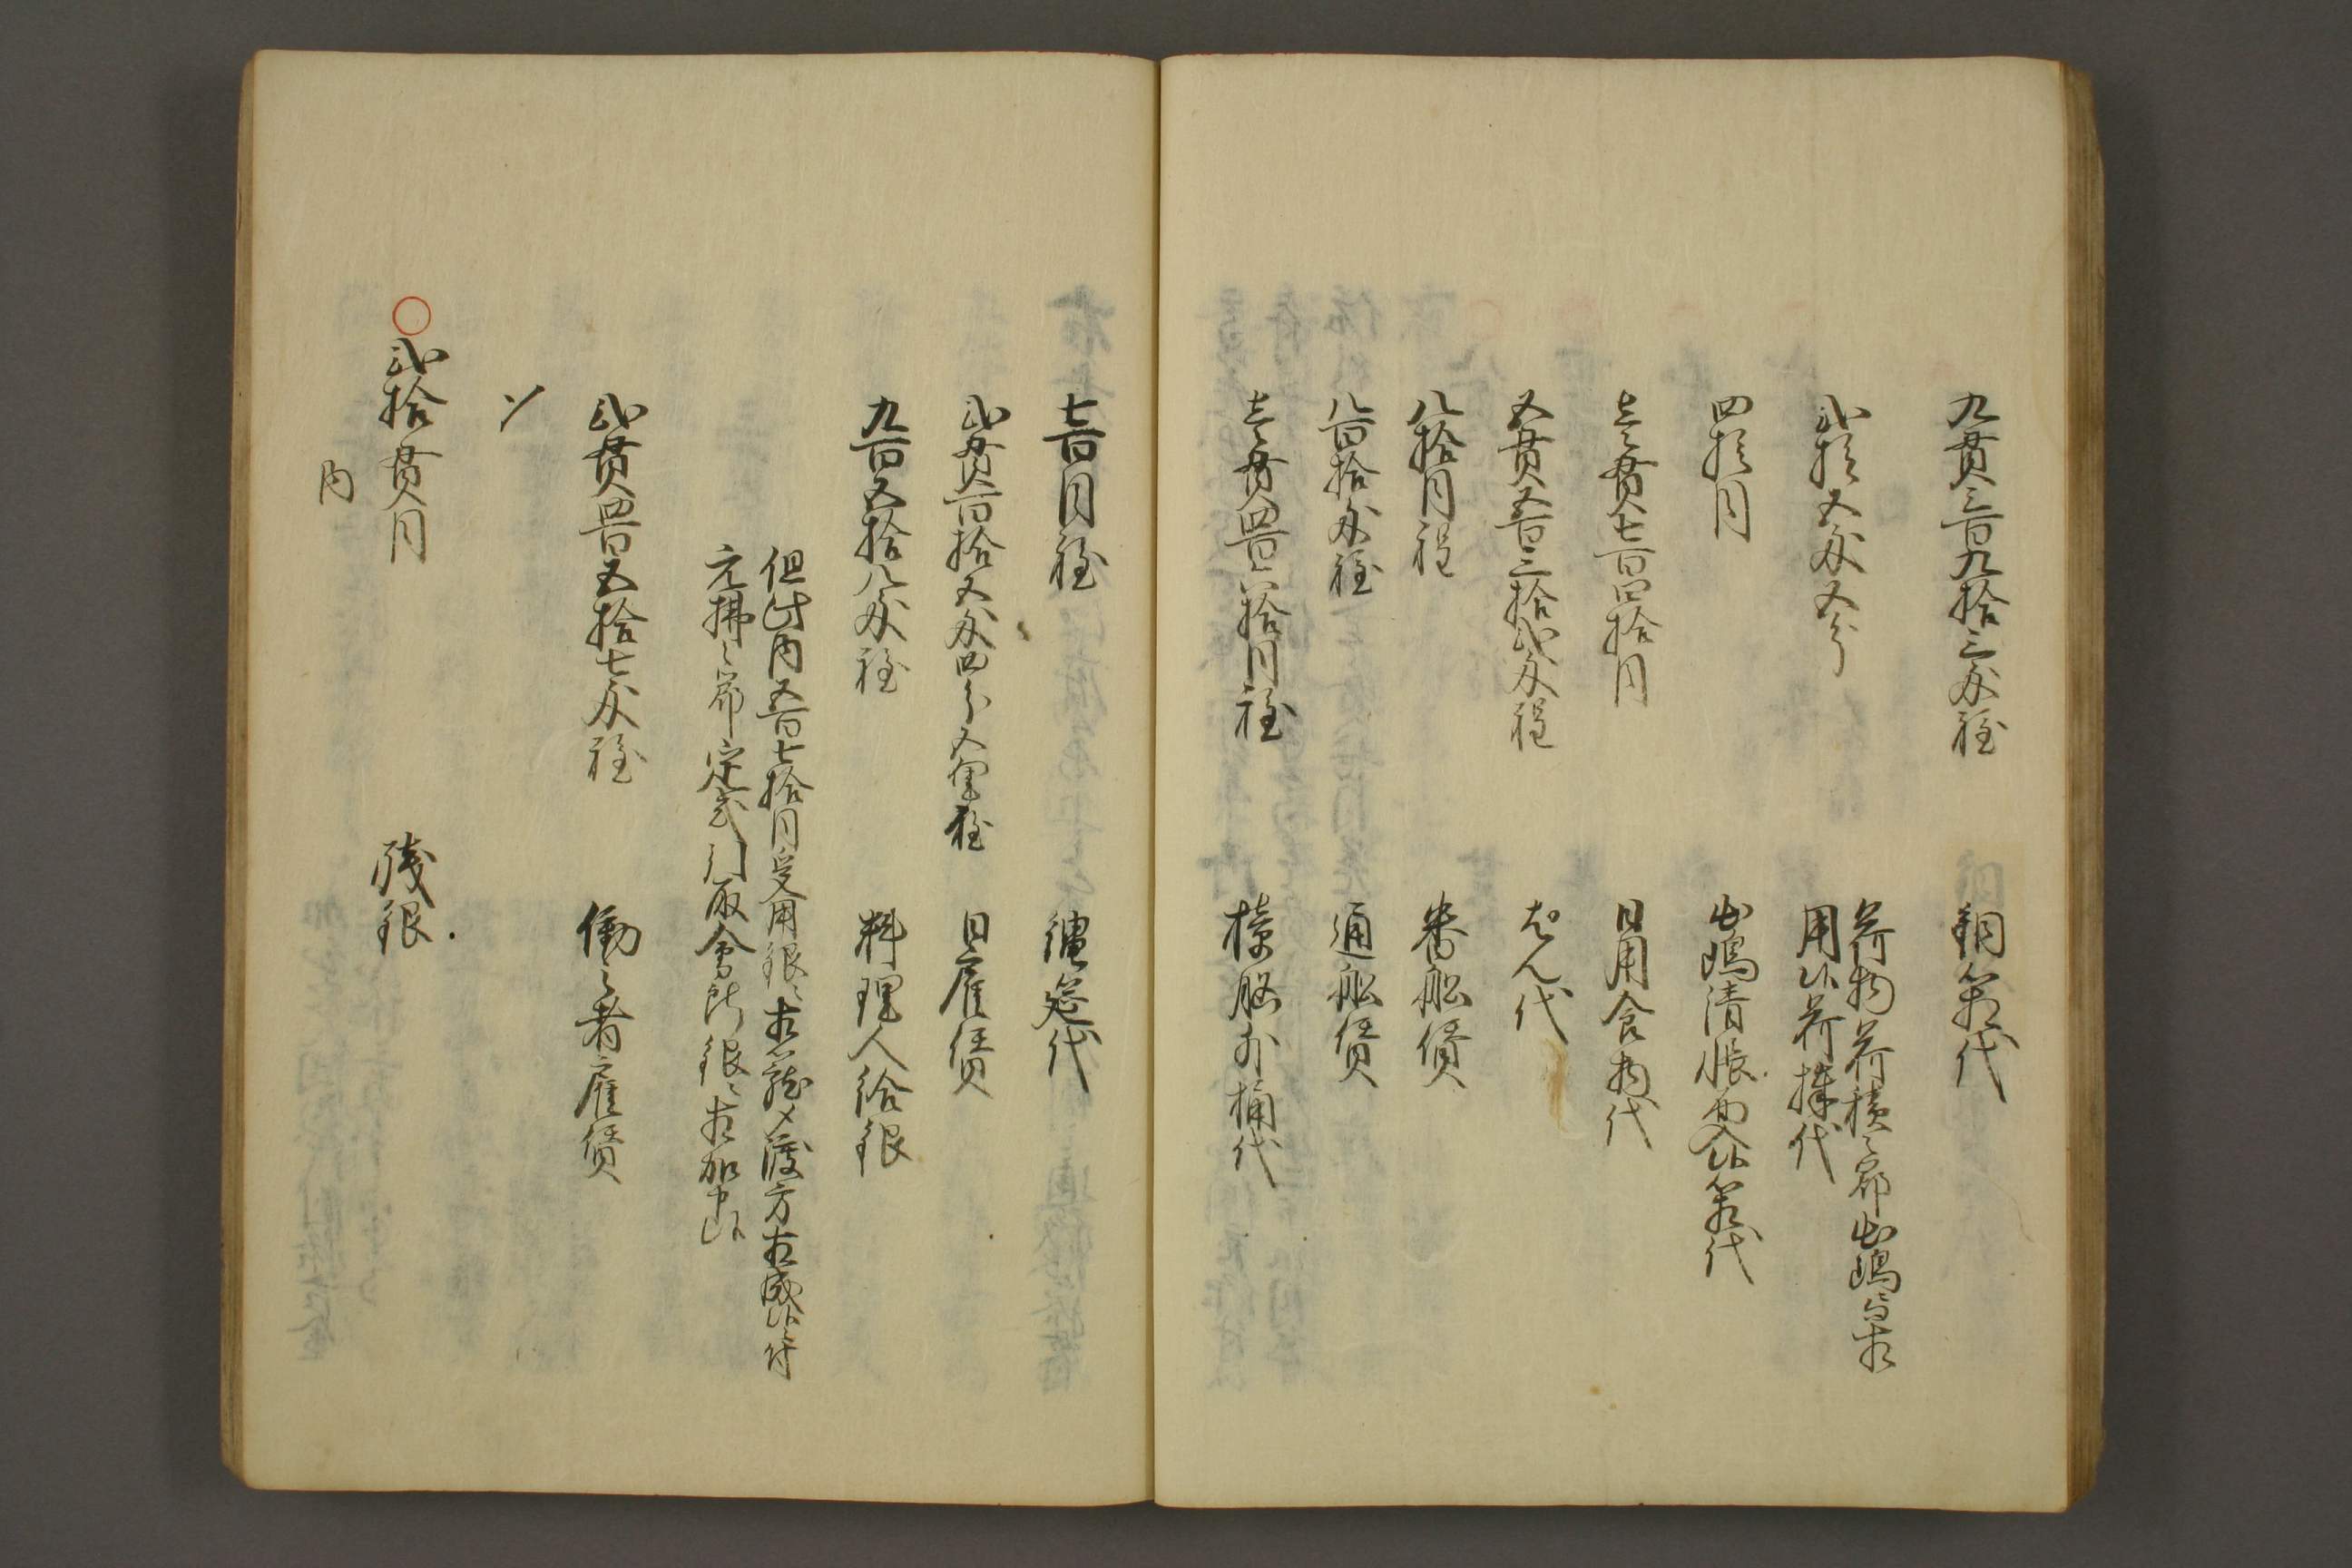 九貫三百九拾三匁程 銅箱代
弐拾五匁五分 荷物荷積之節出嶋ニ而相
用候荷擇代
四拾目 出嶋清帳面入候箱代
壱貫七百四拾目 日用食物代
五貫五百三拾弐匁程 はん代
八拾目程 番船賃
八百拾匁程 通船賃
壱貫四百六拾目程 樟脳外桶代
七百目程 縄莚代
弐貫六百拾五匁四分五厘程 日雇賃
九百五拾八匁程 料理人給銀
但此内五百七拾目受用銀ニ相籠メ渡方相成候ニ付
元拂之節定式引取會所銀ニ相加申候
弐貫四百五拾七匁程 働之者雇賃
〆
○弐拾貫目 残銀
内